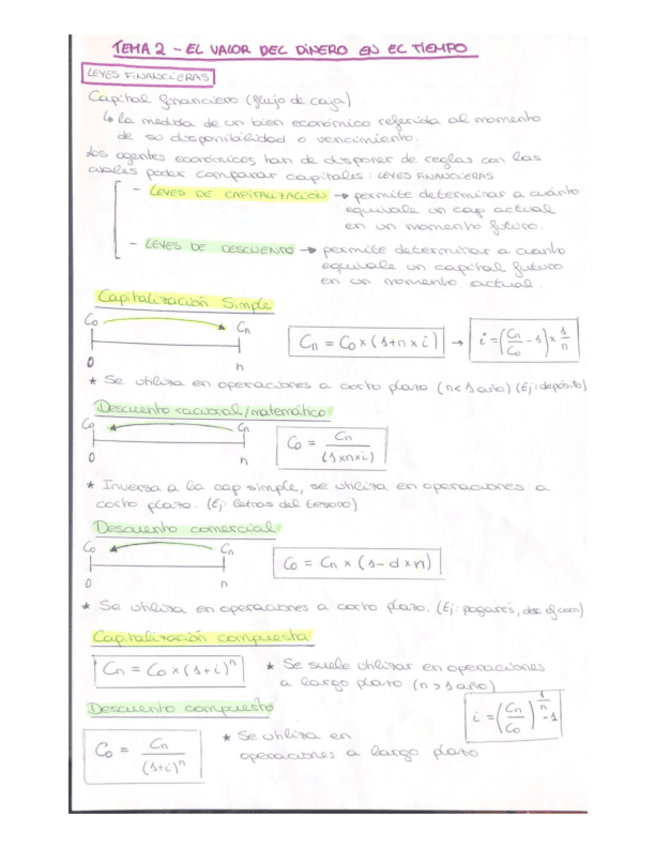 TEMA 2 - EL VALOR DEL DINERO EN EL TIEMPO
LEYES FINANCIERAS
Capital financiero (flujo de caja)
↳ la medida de un bien económico referida al momento
de su disponibilidad o vencimiento.
Los agentes económicos han de disponer de reglas con las
cuales poder comparar capitales: LEYES FINANCIERAS
- LEYES DE CAPITALIZACIÓN → permite determinar a cuánto
equivale un cap actual
en un momento futuro.
- LEYES DE DESCUENTO → permite determinar a cuanto
equivale un capital futuro
en un momento actual.
Capitalización Simple
C0 Cn
0 n
Cn = C0 × (1+n×i) → i = (Cn/C0 - 1) × 1/n
* Se utiliza en operaciones a corto plazo (n<1año) (Ej: depósito)
Descuento racional/matemático
C0 Cn
0 n
C0 = Cn/(1×n×i)
* Inversa a la cap simple, se utiliza en operaciones a
corto plazo. (Ej: letras del tesoro)
Descuento comercial
C0 Cn
0 n
C0 = Cn × (1 - d×n)
* Se utiliza en operaciones a corto plazo. (Ej: pagarés, dec efcom)
Capitalización compuesta
Cn = C0 × (1+i)^n
* Se suele utilizar en operaciones
a largo plazo (n > 1 año)
i = (Cn/C0)^1/n - 1
Descuento compuesto
C0 = Cn/(1+i)^n
* Se utiliza en
operaciones a largo plazo